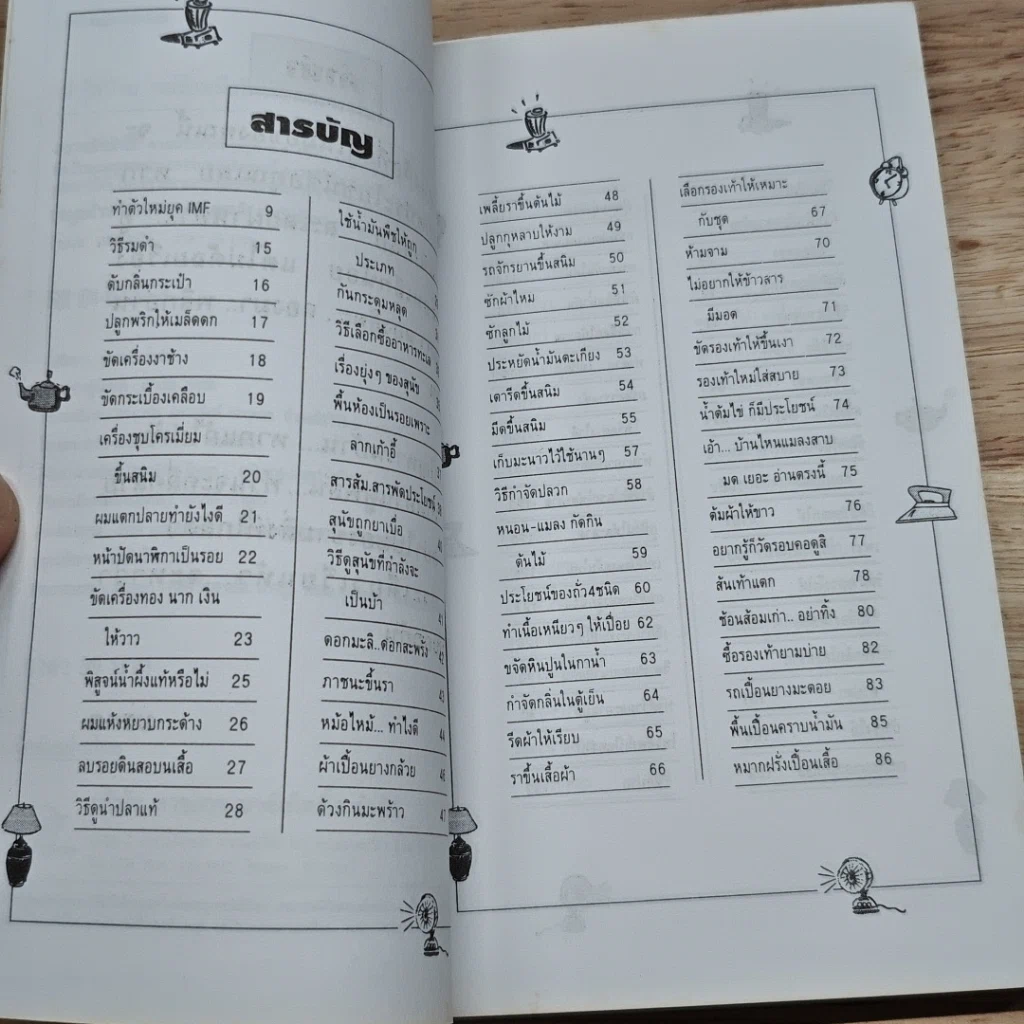 สารบัญ
ทำตัวใหม่ยุค IMF 9
วิธีรมดำ 15
ดับกลิ่นกระเป๋า 16
ปลูกพริกให้เมล็ดดก 17
ขัดเครื่องงาช้าง 18
ขัดกระเบื้องเคลือบ 19
เครื่องชุบโครเมี่ยม
ขึ้นสนิม 20
ผมแตกปลายทำยังไงดี 21
หน้าปัดนาฬิกาเป็นรอย 22
ขัดเครื่องทอง นาก เงิน
ให้วาว 23
พิสูจน์น้ำผึ้งแท้หรือไม่ 25
ผมแห้งหยาบกระด้าง 26
ลบรอยดินสอบนเสื้อ 27
วิธีดูน้ำปลาแท้ 28
ใช้น้ำมันพืชให้ถูก
ประเภท
กันกระดุมหลุด
วิธีเลือกซื้ออาหารทะเล
เรื่องยุ่งๆ ของสุนัข
พื้นห้องเป็นรอยเพราะ
ลากเก้าอี้
สารส้ม.สารพัดประโยชน์
สุนัขถูกยาเบื่อ 40
วิธีดูสุนัขที่กำลังจะ
เป็นบ้า 41
ดอกมะลิ..ดอกสะพรั่ง 42
ภาชนะขึ้นรา 43
หม้อไหม้... ทำไงดี 44
ผ้าเปื้อนยางกล้วย 46
ด้วงกินมะพร้าว 47
เพลี้ยราขึ้นต้นไม้ 48
ปลูกกุหลาบให้งาม 49
รถจักรยานขึ้นสนิม 50
ซักผ้าไหม 51
ซักลูกไม้ 52
ประหยัดน้ำมันตะเกียง 53
เตารีดขึ้นสนิม 54
มีดขึ้นสนิม 55
เก็บมะนาวไว้ใช้นานๆ 57
วิธีกำจัดปลวก 58
หนอน-แมลง กัดกิน
ต้นไม้ 59
ประโยชน์ของถั่ว4ชนิด 60
ทำเนื้อเหนียวๆ ให้เปื่อย 62
ขจัดหินปูนในกาน้ำ 63
กำจัดกลิ่นในตู้เย็น 64
รีดผ้าให้เรียบ 65
ราขึ้นเสื้อผ้า 66
เลือกรองเท้าให้เหมาะ
กับชุด 67
ห้ามจาม 70
ไม่อยากให้ข้าวสาร
มีมอด 71
ขัดรองเท้าให้ขึ้นเงา 72
รองเท้าใหม่ใส่สบาย 73
น้ำต้มไข่ ก็มีประโยชน์ 74
เอ้า... บ้านไหนแมลงสาบ
มด เยอะ อ่านตรงนี้ 75
ต้มผ้าให้ขาว 76
อยากรู้ก็วัดรอบคอดูสิ 77
ส้นเท้าแตก 78
ช้อนส้อมเก่า.. อย่าทิ้ง 80
ซื้อรองเท้ายามบ่าย 82
รถเปื้อนยางมะตอย 83
พื้นเปื้อนคราบน้ำมัน 85
หมากฝรั่งเปื้อนเสื้อ 86